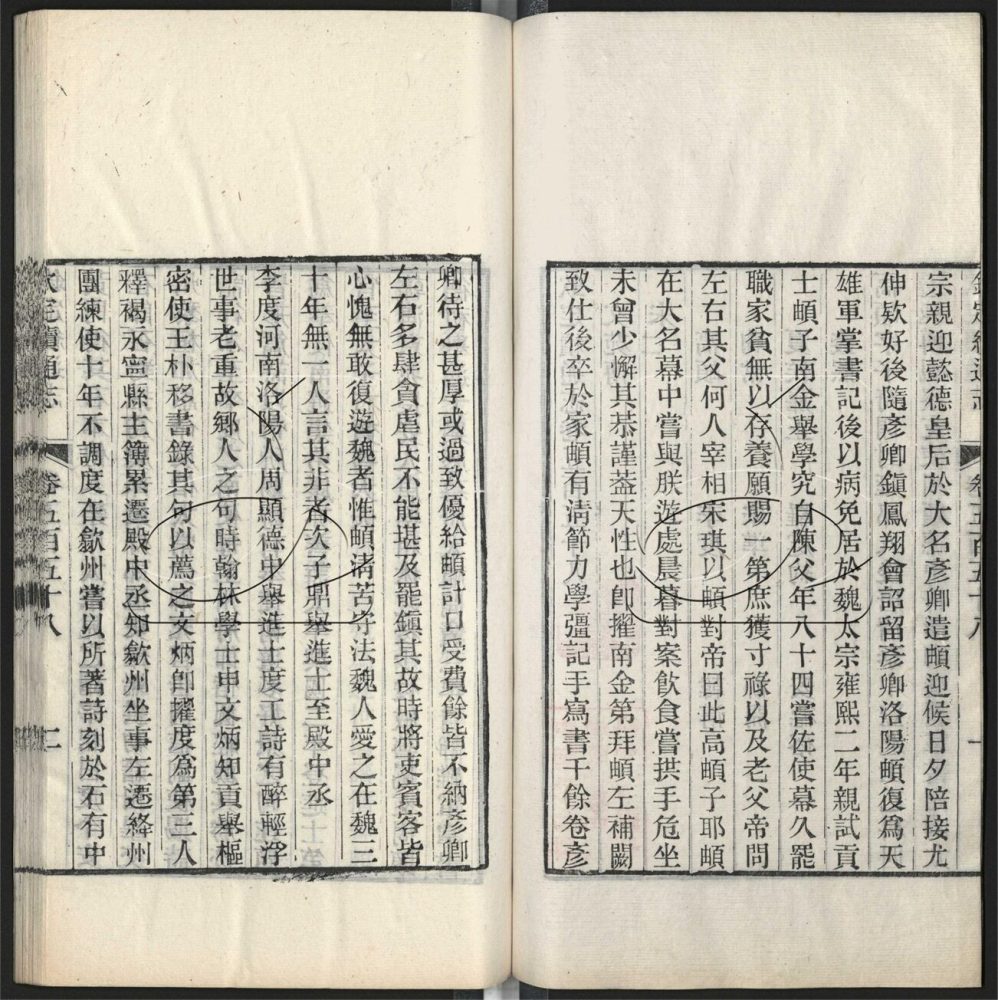 欽定續通志 卷五百五十八 一
宗親迎懿德皇后於大名彥卿遣頔迎候日夕陪接尤
伸欵好後隨彥卿鎭鳳翔會詔留彥卿洛陽頔復爲天
雄軍掌書記後以病免居於魏太宗雍熙二年親試貢
士頔子南金舉學究自陳父年八十四嘗佐使幕久罷
職家貧無以存養願賜一第庶獲寸祿以及老父帝問
左右其父何人宰相宋琪以頔對帝曰此高頔子耶頔
在大名幕中嘗與朕遊處晨暮對案飮食嘗拱手危坐
未曾少懈其恭謹葢天性也卽擢南金第拜頔左補闕
致仕後卒於家頔有清節力學彊記手寫書千餘卷彥
卿待之甚厚或過致優給頔計口受費餘皆不納彥卿
左右多肆貪虐民不能堪及罷鎭其故時將吏賓客皆
心愧無敢復遊魏者惟頔清苦守法魏人愛之在魏三
十年無一人言其非者次子鼎舉進士至殿中丞
李度河南洛陽人周顯德中舉進士度工詩有醉輕浮
世事老重故鄉人之句時翰林學士申文炳知貢舉樞
密使王朴移書錄其句以薦之文炳卽擢度爲第三人
釋褐永寧縣主簿累遷殿中丞知歙州坐事左遷絳州
團練使十年不調度在歙州嘗以所著詩刻於石有中
欽定續通志 卷五百五十八 二